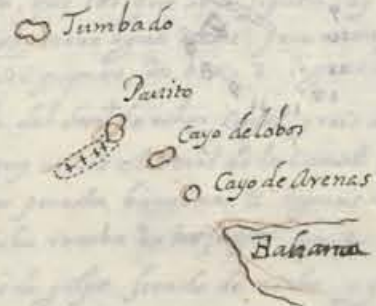 Tumbado
Pavito
Cayo de lobos
Cayo de Arenas
Bahama